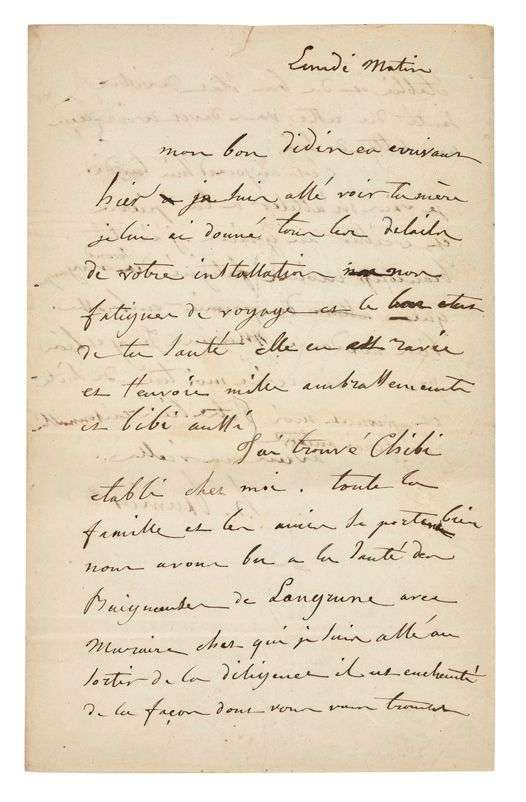 Lundi Matin
mon bon didin en arrivant
hier je suis allé voir ta mère
je lui ai donné tous les details
de votre installation non
fatigues de voyage et le bon etat
de ta santé elle en est ravie
et t'envoie mille ambrassements
et bibi aussi
J'ai trouvé Chibi
etabli ches moi. toute la
famille et les amies se portent bien
nous avons bu a la santé des
Baigneuses de Langrune avec
ches qui je suis allé au
sortir de la diligence il est enchanté
de la façon dont vous vous trouvés